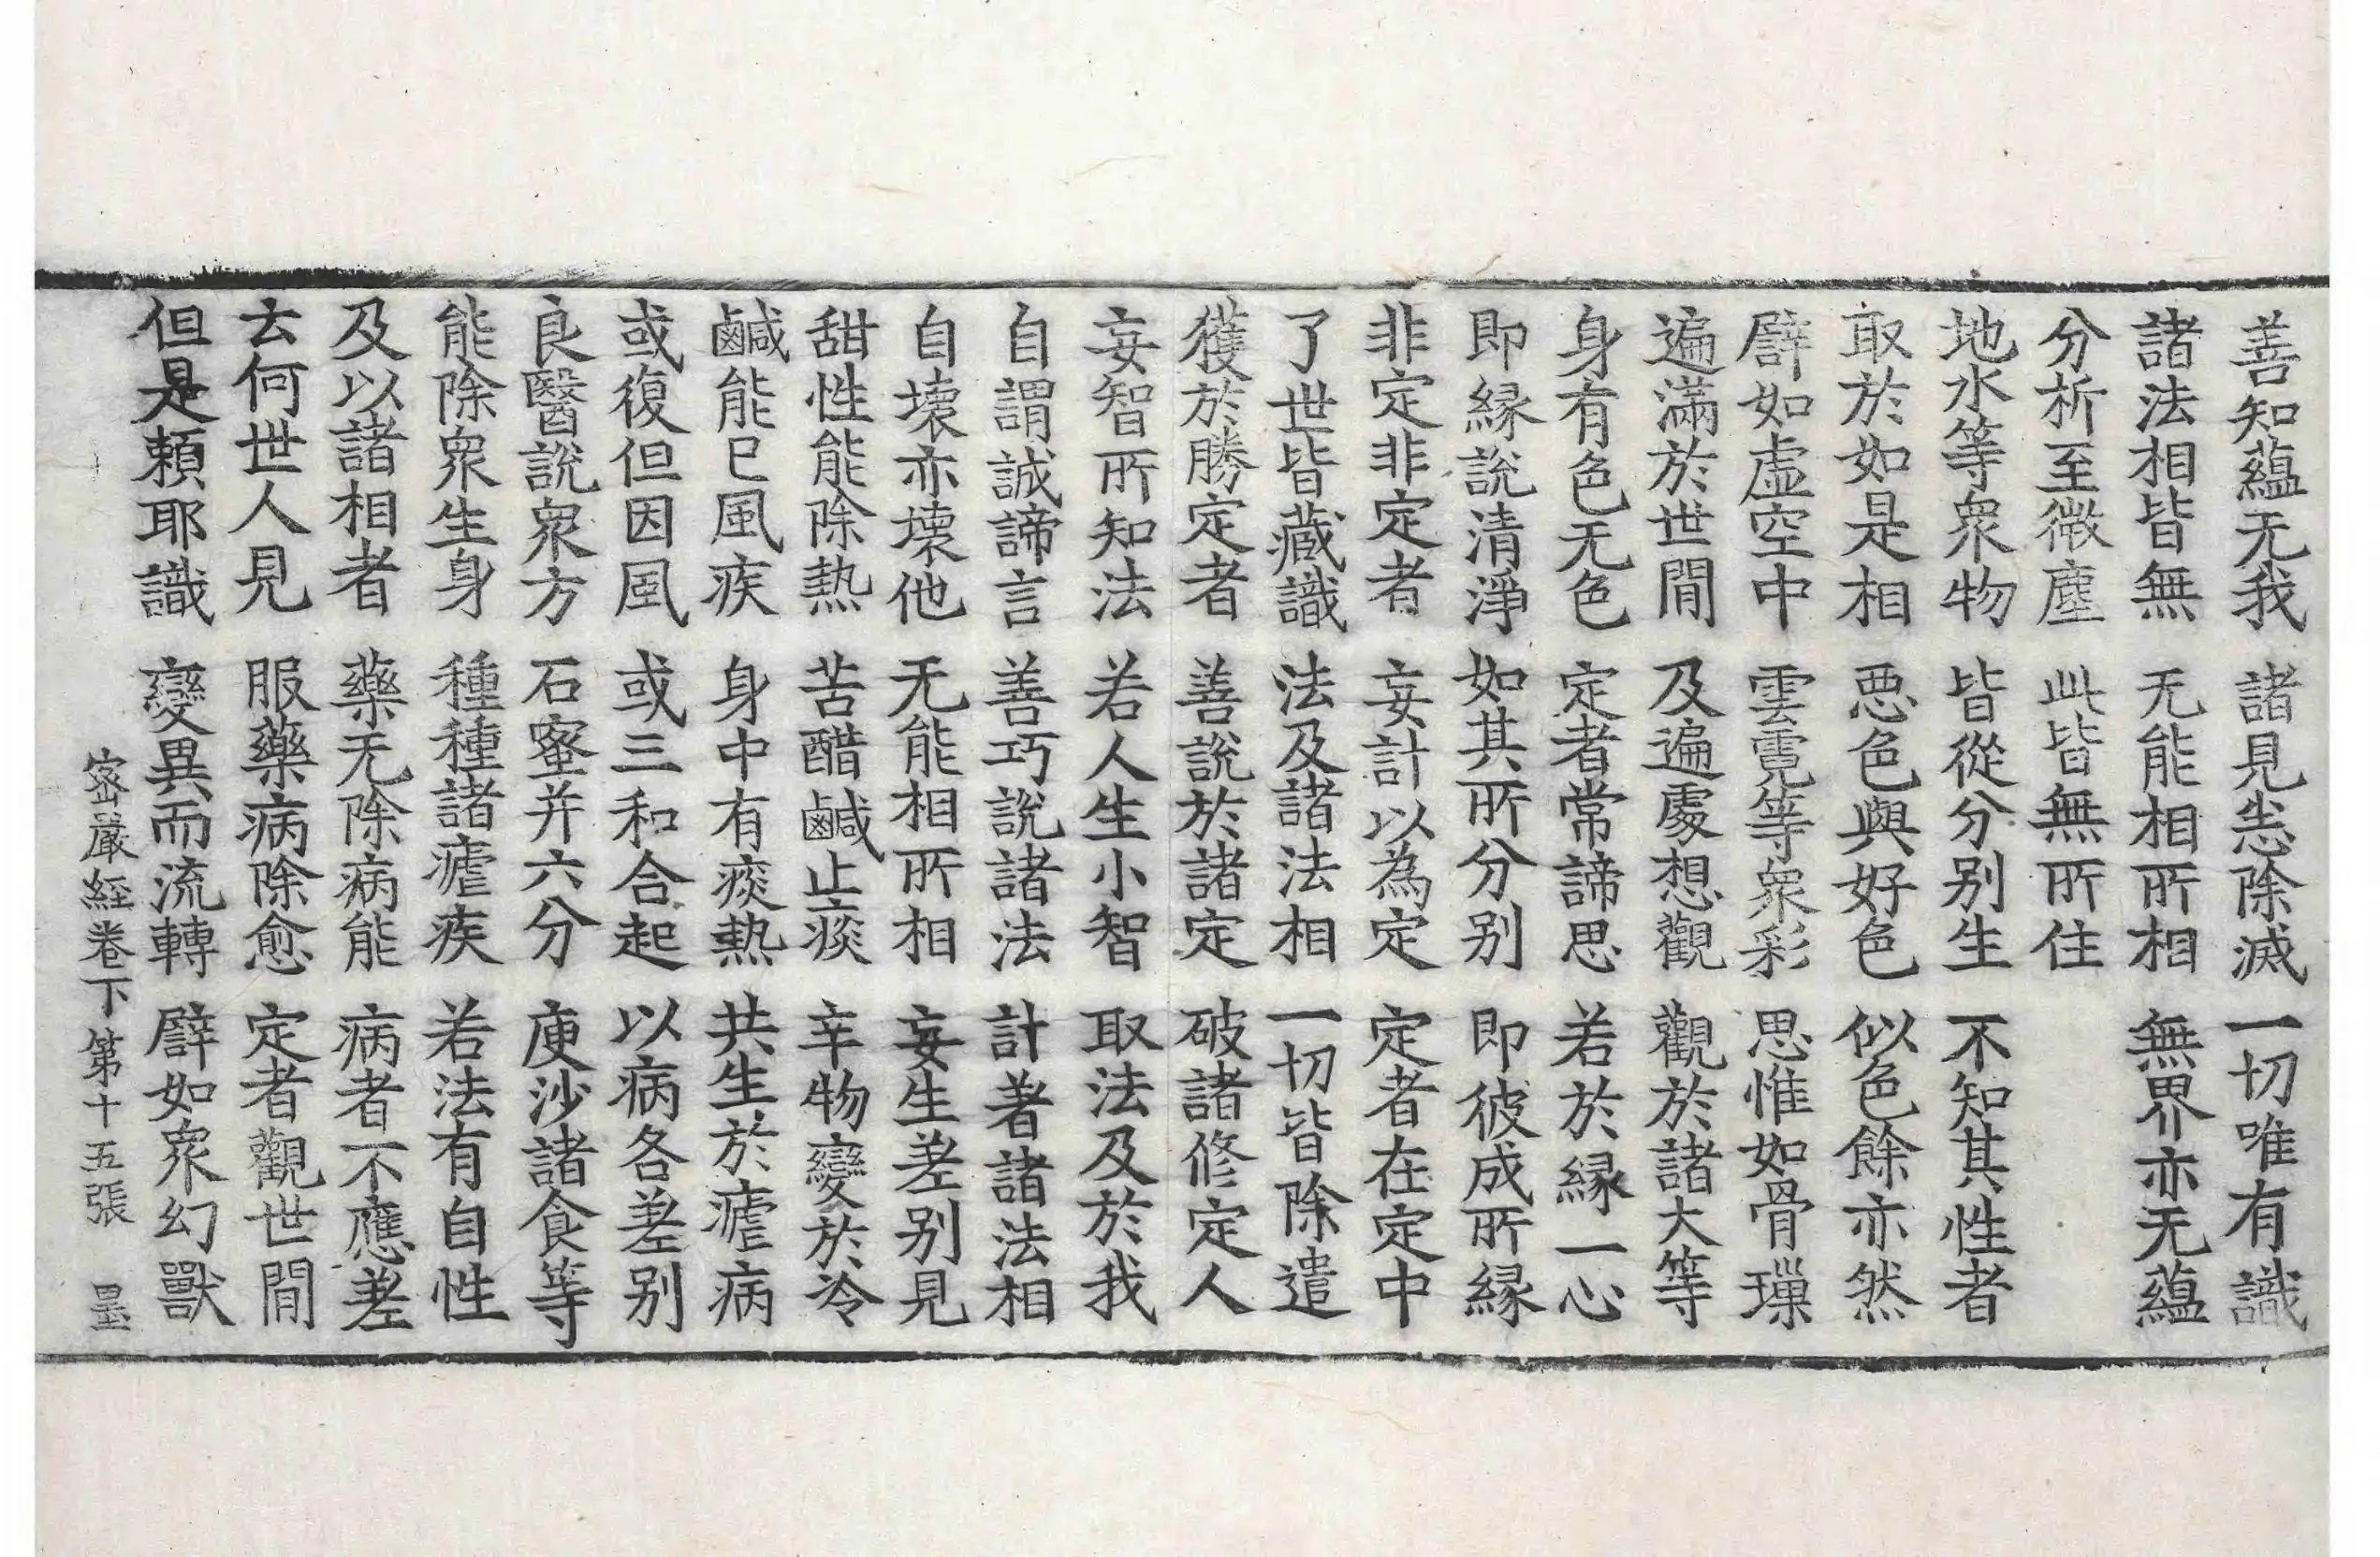 善知蘊无我　諸見悉除滅　一切唯有識
諸法相皆無　无能相所相　無界亦无蘊
分析至微塵　此皆無所住
地水等衆物　皆從分别生　不知其性者
取於如是相　惡色與好色　似色餘亦然
譬如虛空中　雲霓等衆彩　思惟如骨璅
遍滿於世間　及遍處想觀　觀於諸大等
身有色无色　定者常諦思　若於緣一心
即緣說清淨　如其所分别　即彼成所緣
非定非定者　妄計以為定　定者在定中
了世皆藏識　法及諸法相　一切皆除遣
獲於勝定者　善說於諸定　破諸修定人
妄智所知法　若人生小智　取法及於我
自謂誠諦言　善巧說諸法　計著諸法相
自壞亦壞他　无能相所相　妄生差别見
甜性能除熱　苦醋鹹止痰　辛物變於冷
鹹能已風疾　身中有痰熱　共生於瘧病
或復但因風　或三和合起　以病各差别
良醫說衆方　石蜜并六分　庾沙諸食等
能除衆生身　種種諸瘧疾　若法有自性
及以諸相者　藥无除病能　病者不應差
云何世人見　服藥病除愈　定者觀世間
但是賴耶識　變異而流轉　譬如衆幻獸
密嚴經卷下　第十五張　墨